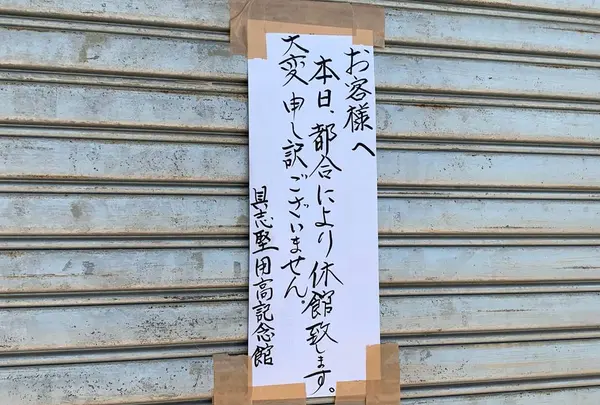 お客様へ
本日、都合により休館致します。
大変申し訳ございません。
具志堅用高記念館